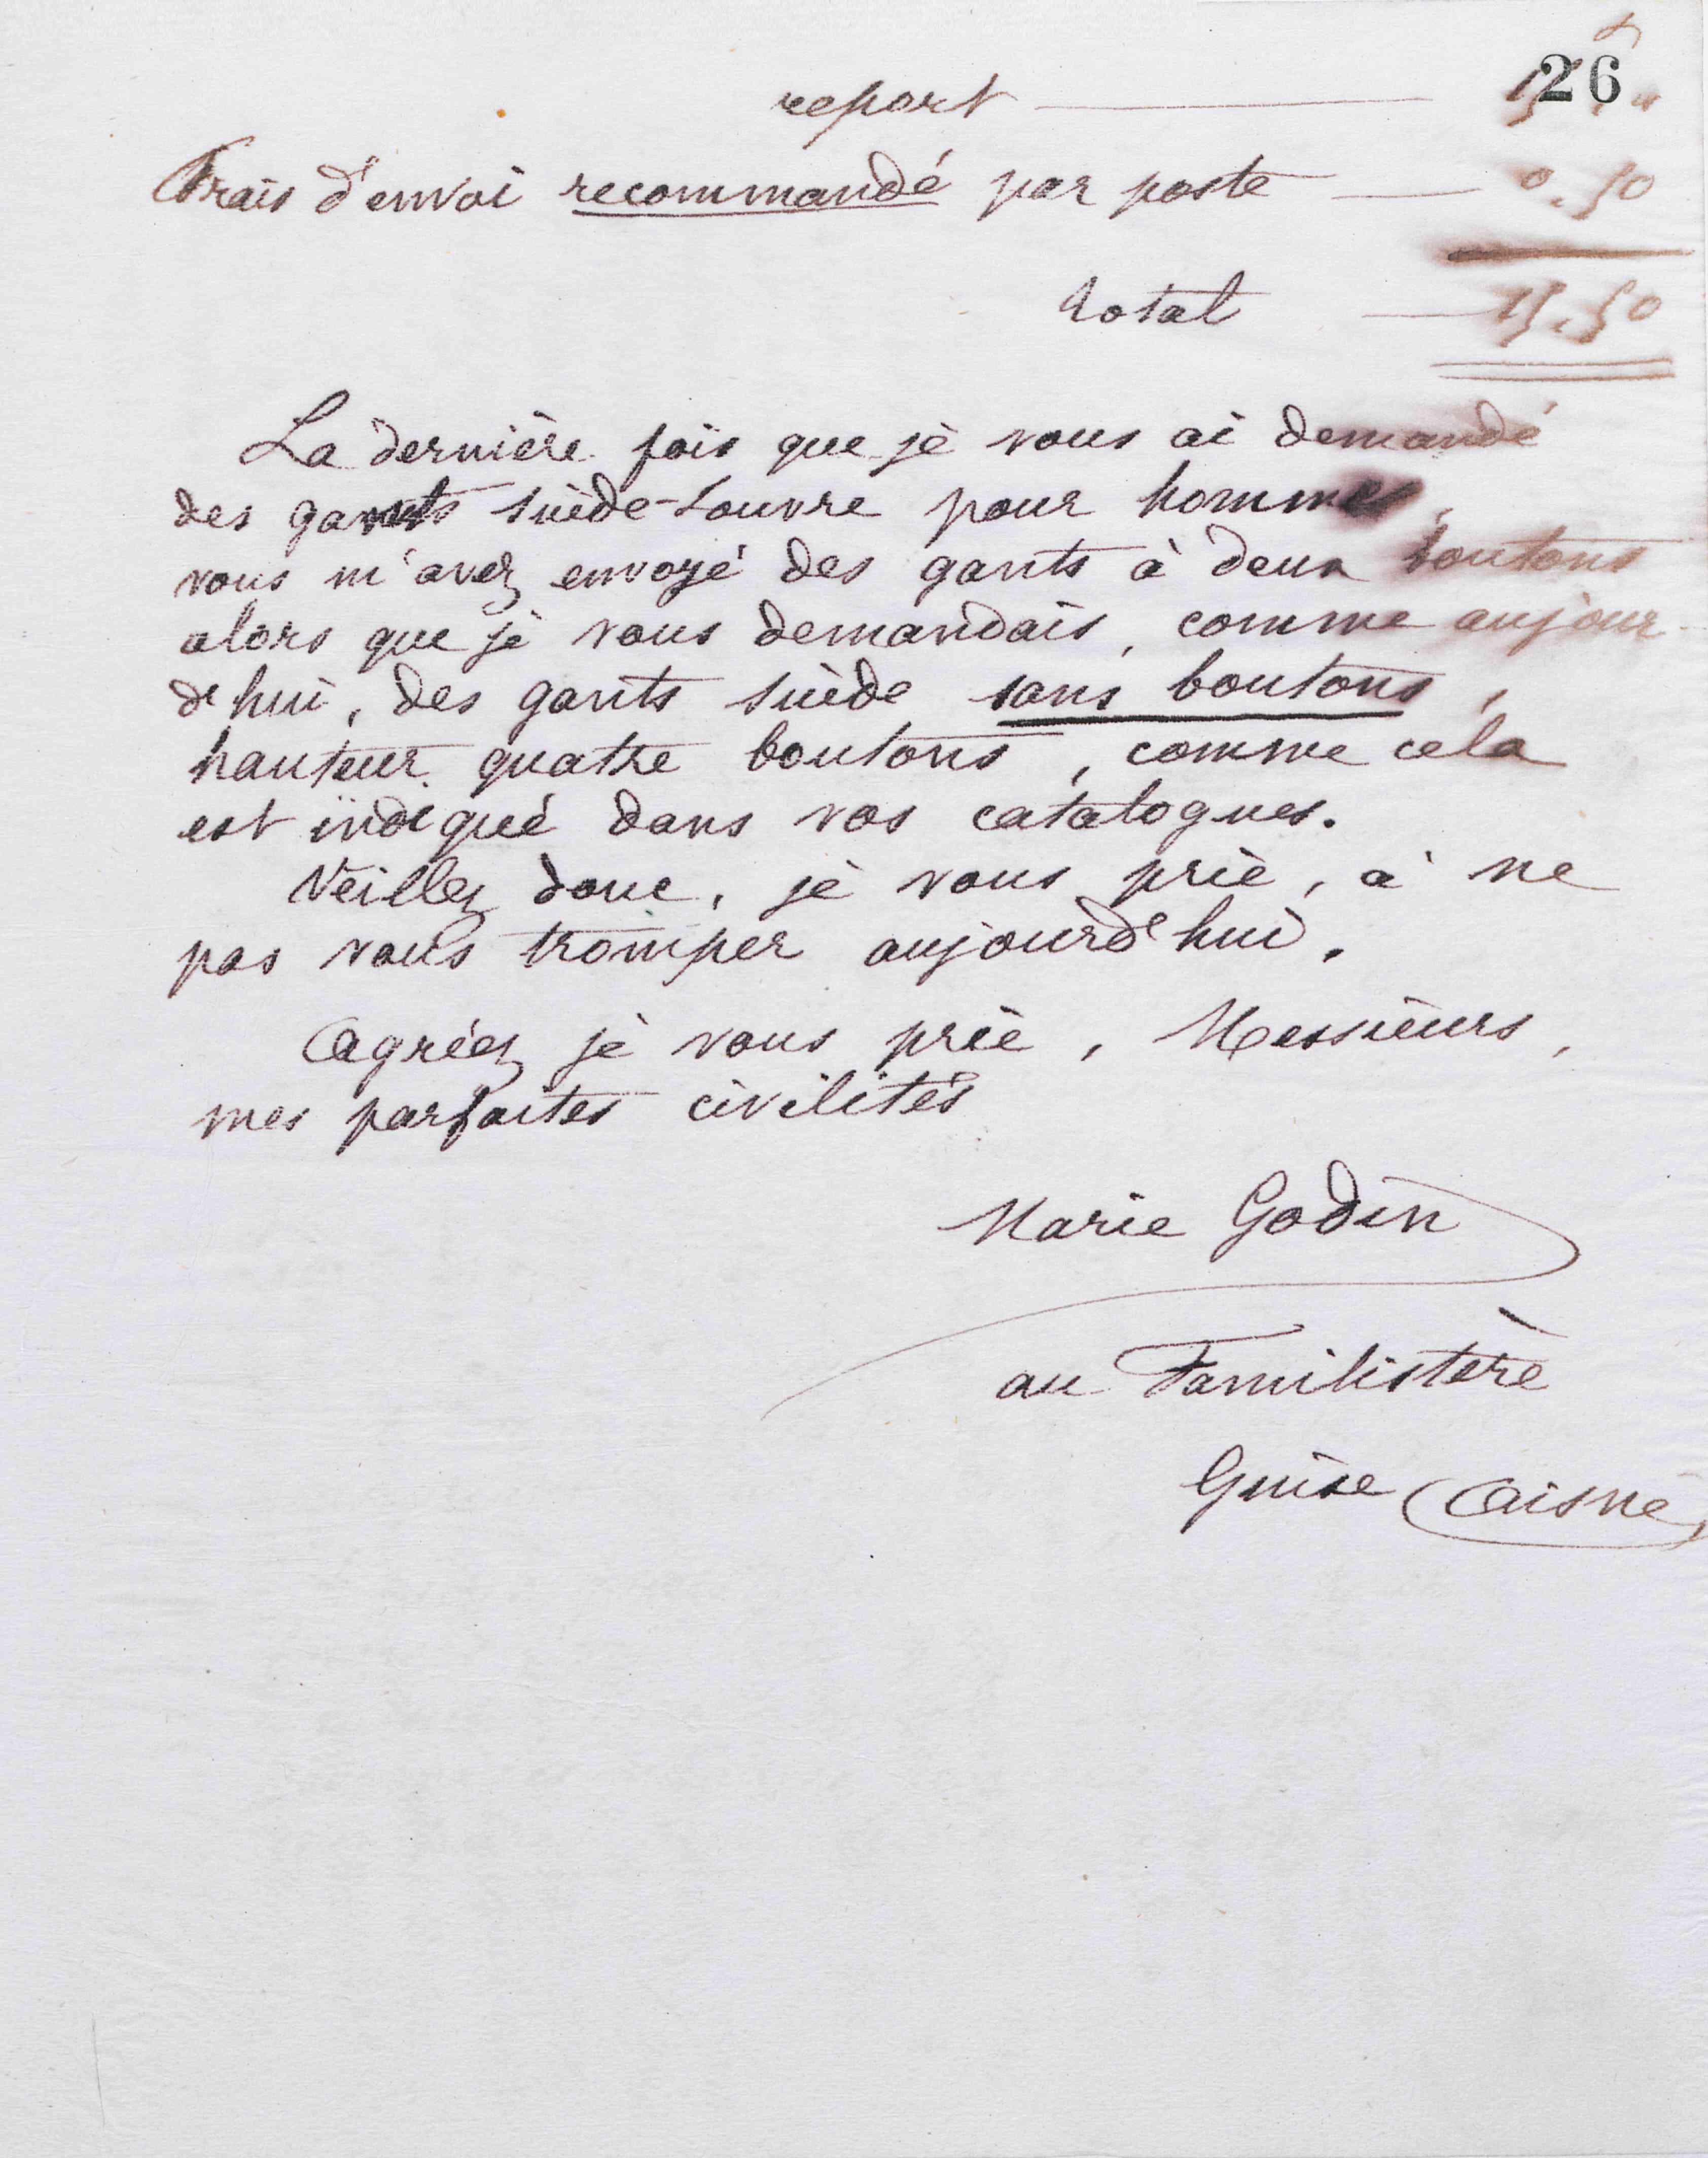 26
report — 15 "
Frais d'envoi recommandé par poste — 0.50
Total — 15.50
La dernière fois que je vous ai demandé
des gants suède-Louvre pour hommes,
vous m'avez envoyé des gants à deux boutons
alors que je vous demandais, comme aujour-
d'hui, des gants suède sans boutons,
hauteur quatre boutons, comme cela
est indiqué dans vos catalogues.
Veillez donc, je vous prie, à ne
pas vous tromper aujourd'hui.
Agréez je vous prie, Messieurs,
mes parfaites civilités
Marie Godin
au Familistère
Guise (Aisne)